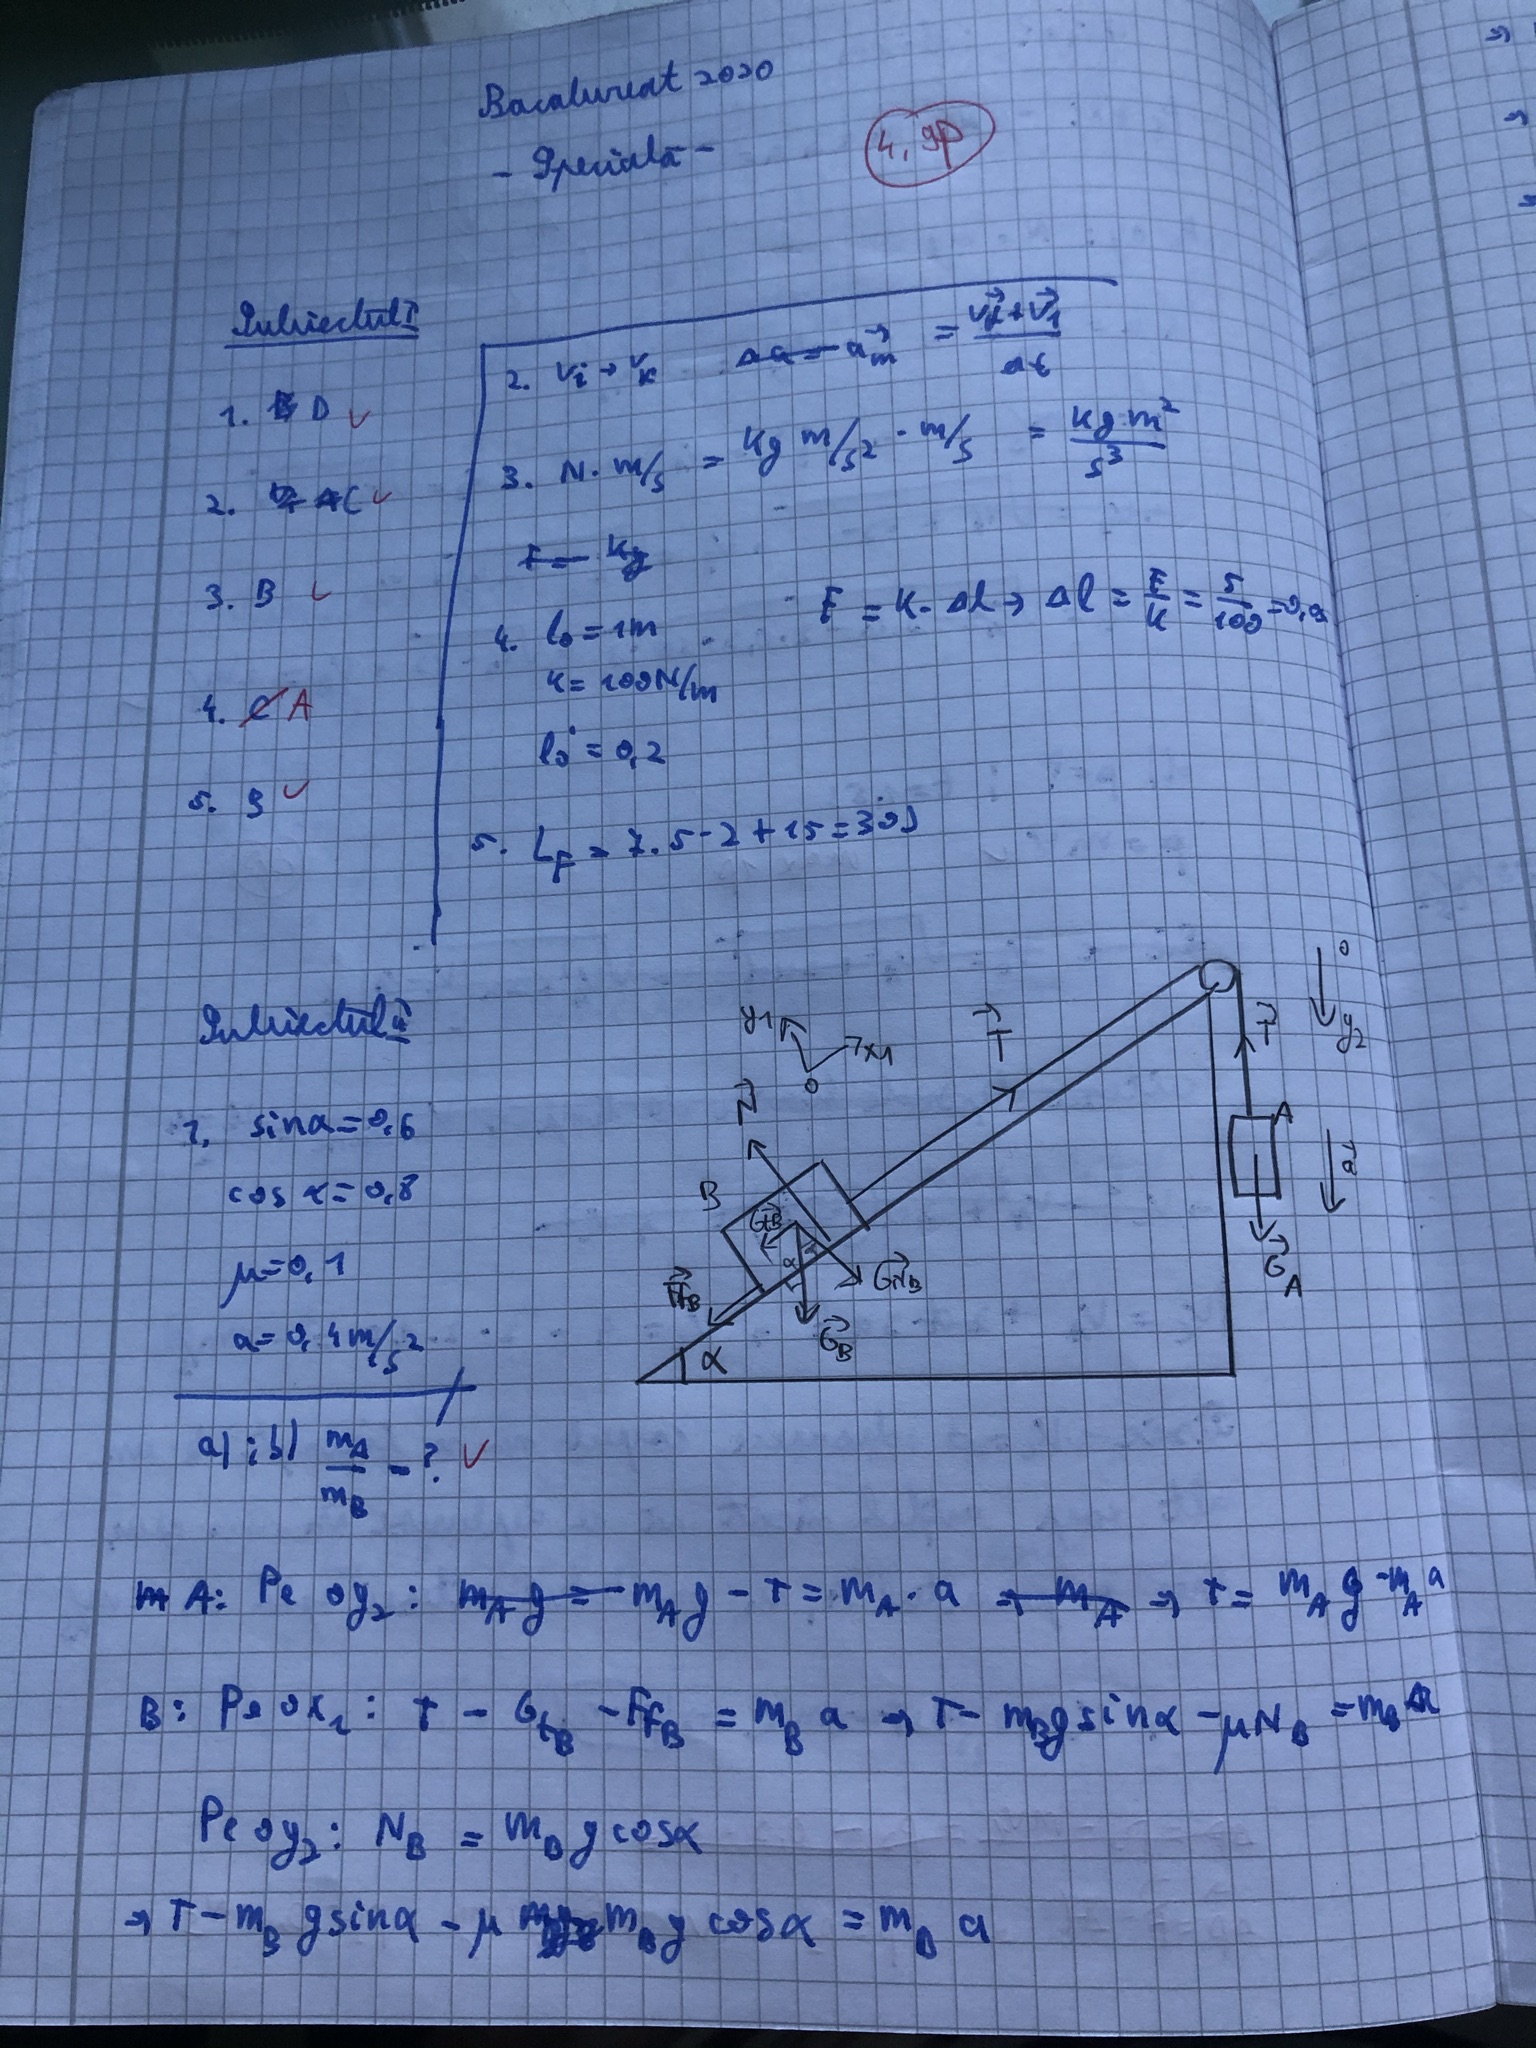 Bacalureat 2020
- Specială -
4,9p
Subiectul I
1. D
2. C
3. B
4. C A
5. B
2. vi → vk am = v + v1 / Δt
3. N · m/s = kg m/s² · m/s = kg m² / s³
F = kg
4. l0 = 1m F = K · Δl → Δl = F/K = 5/100 =
K = 100N/m
l0 = 0,2
5. LF = 7.5 - 2 + 15 = 30J
Subiectul II
1. sinα = 0,6
cos α = 0,8
μ = 0,1
a = 0,4 m/s²
a) ; b) mA/mB = ?
y1 x1 O
N T T
O y2
B A a
GtB GNB GA
FfB GB
α α
A: Pe oy2: mAg = mAg - T = mA · a → mA → T = mA g - mA a
B: Pe ox1: T - GtB - FfB = mB a → T - mB g sinα - μNB = mB a
Pe oy2: NB = mB g cosα
→ T - mB g sinα - μ mB g cosα = mB a